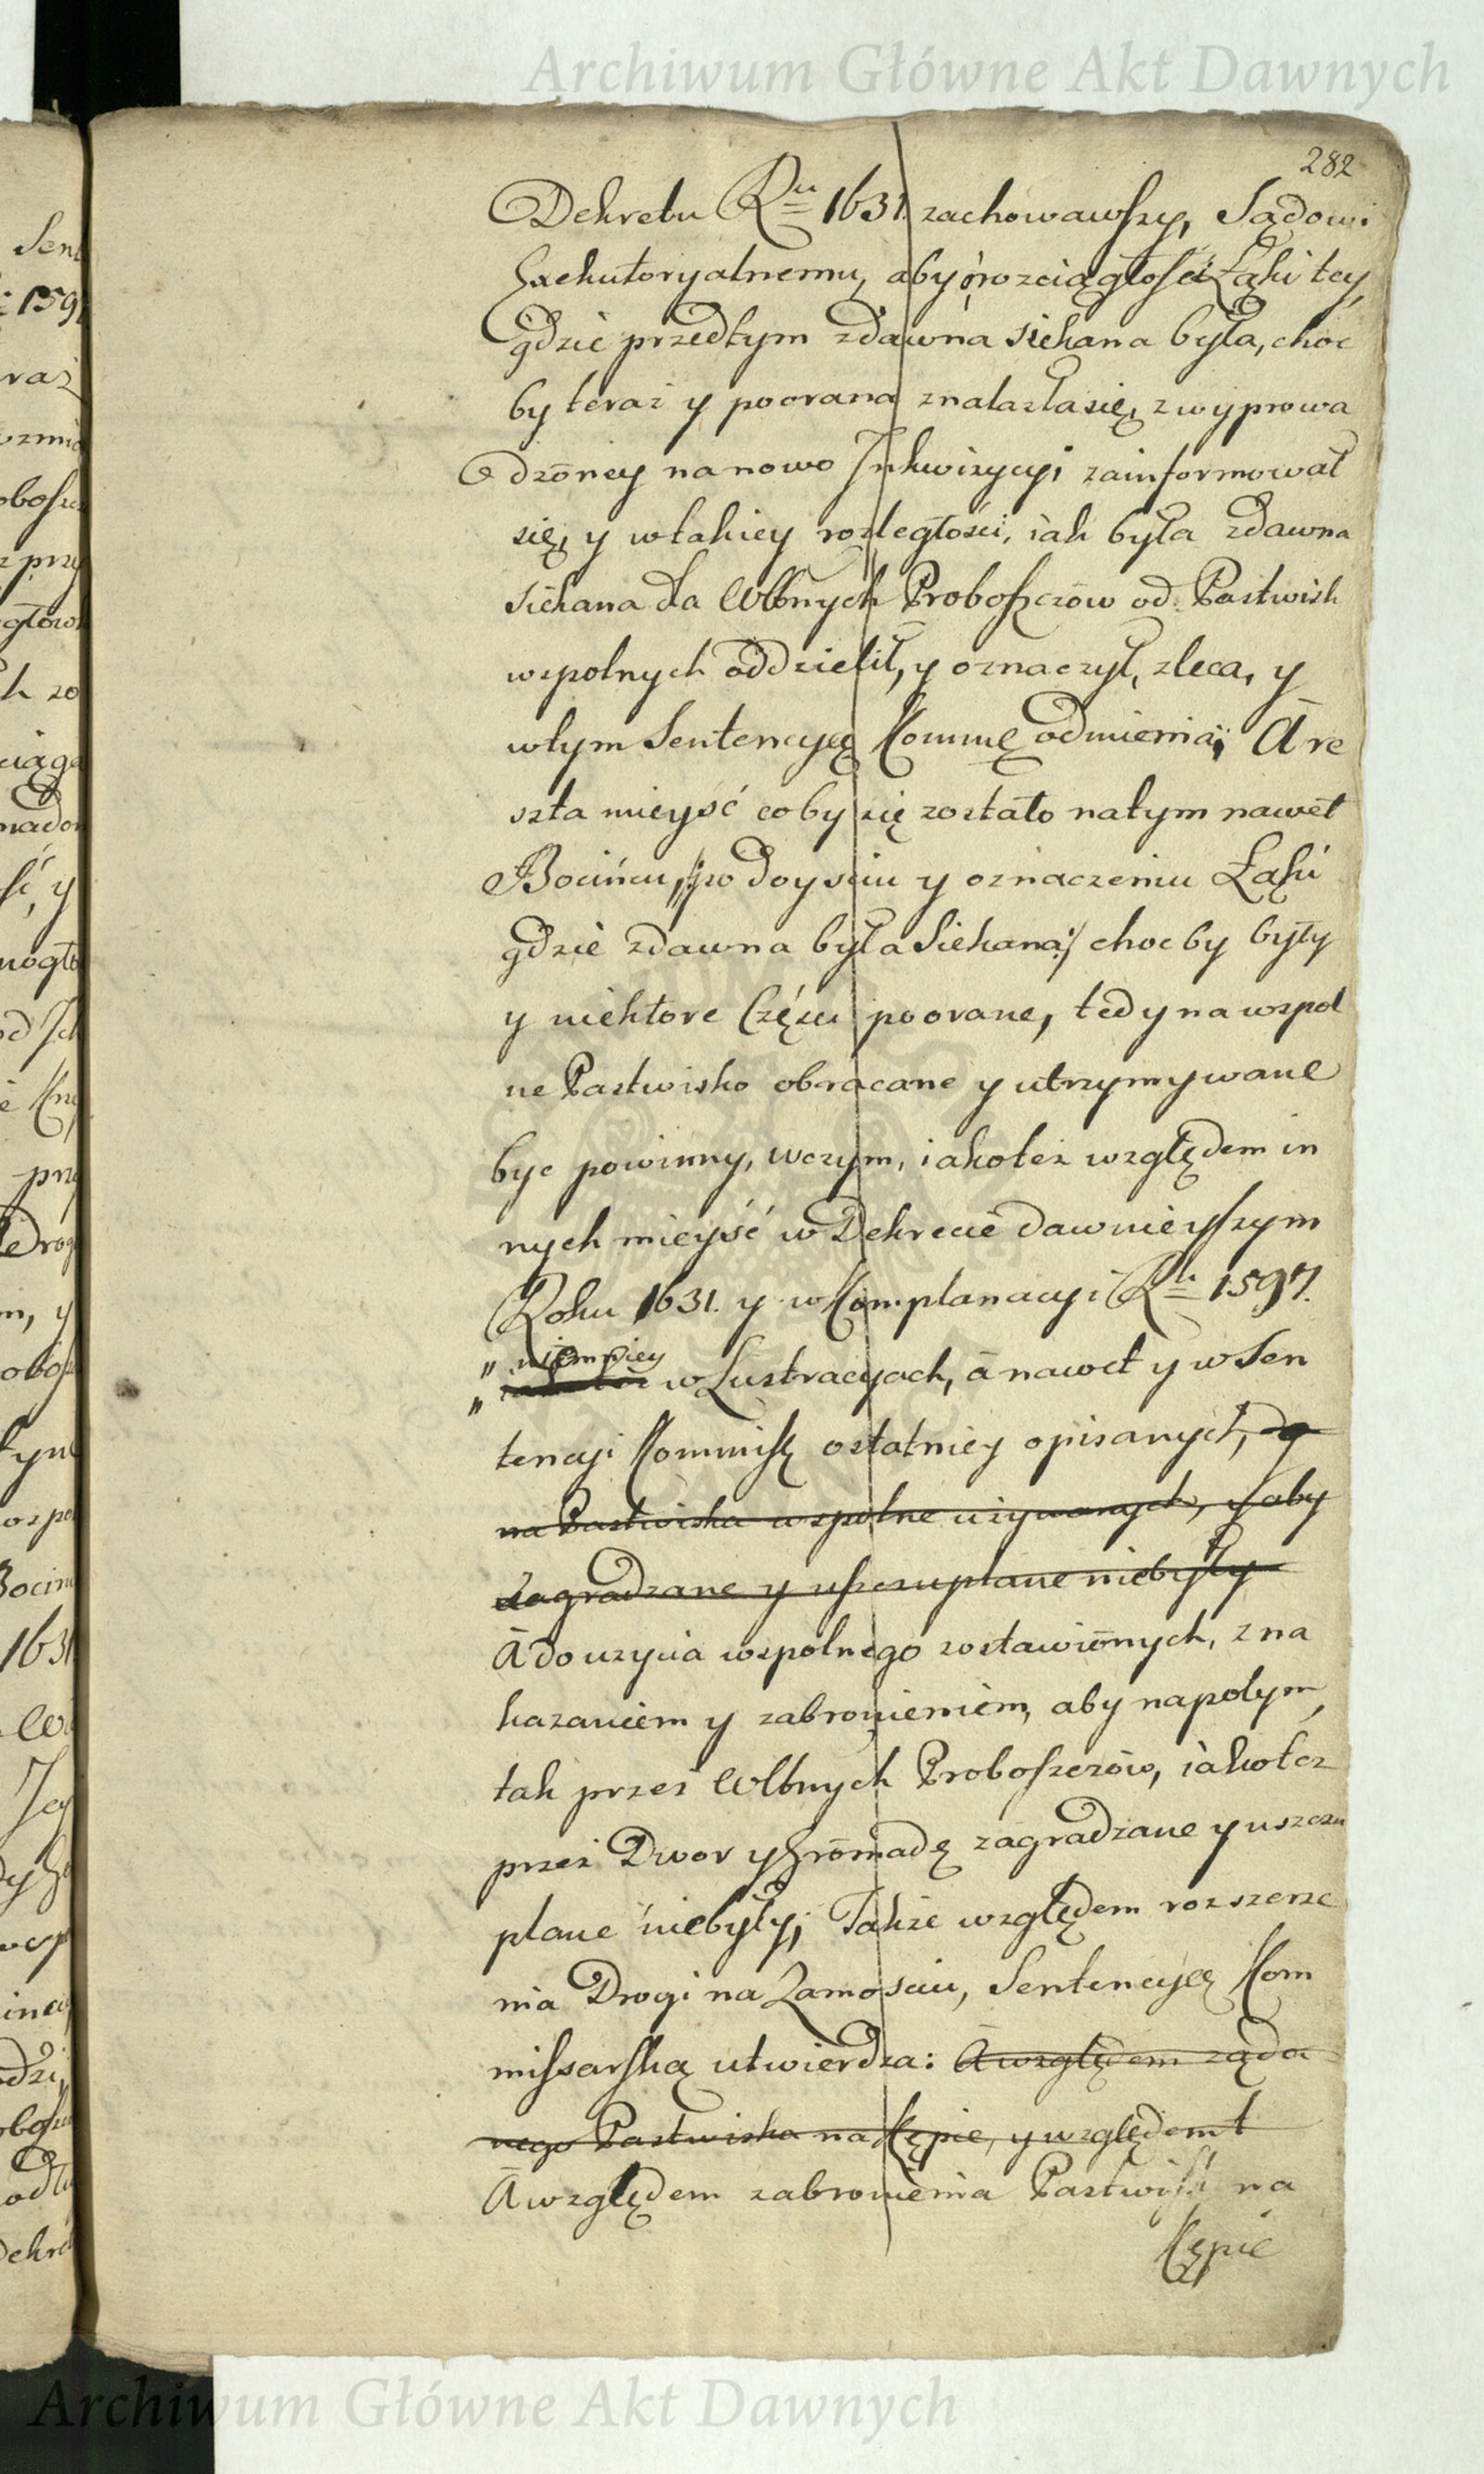 Archiwum Główne Akt Dawnych
282
Dekretu Ru 1631. zachowawszy, Sądowi
Exekutoryalnemu, aby o rozciągłości Łąki tey,
gdzie przedtym zdawna siekana była, choc
by teraz y poorana znalazła się, z wyprowa
dzoney na nowo Inkwizycyi zainformował
się, y w takiey rozległości, iak była zdawna
siekana dla Wlbnych Proboszczow od Pastwisk
wspolnych oddzielił, y oznaczył, zleca, y
w tym Sentencyą Kommę odmienia; A re
szta mieysć coby się zostało na tym nawet
Bocińcu, /:po doysciu y oznaczeniu Łąki
gdzie zdawna była Siekana:/ choc by były
y niektore Części poorane, tedy na wspol
ne Pastwisko obracane y utrzymywane
byc powinny, w czym, iakotez względem in
nych mieysć w Dekrecie dawnieyszym
Roku 1631. y w Komplanacyi Ru 1597.
" niemniey
" w Lustracyach, a nawet y w Sen
tencyi Kommisſ ostatniey opisanych,
na Pastwiska wspolne używanych, y aby
zagradzane y uszczuplane niebyły
A do uzycia wspolnego zostawionych, z na
kazaniem y zabronieniem, aby napotym,
tak przez Wlbnych Proboszczow, iakotez
przez Dwor y Gromadę zagradzane y uszczu
plane niebyły; Takze względem rozszerze
nia Drogi na Zamosciu, Sentencyą Kom
missarską utwierdza: A względem ząda
nego Pastwiska na Kępie, y względem t
A względem zabronienia Pastwisk na
Kępie
Archiwum Główne Akt Dawnych